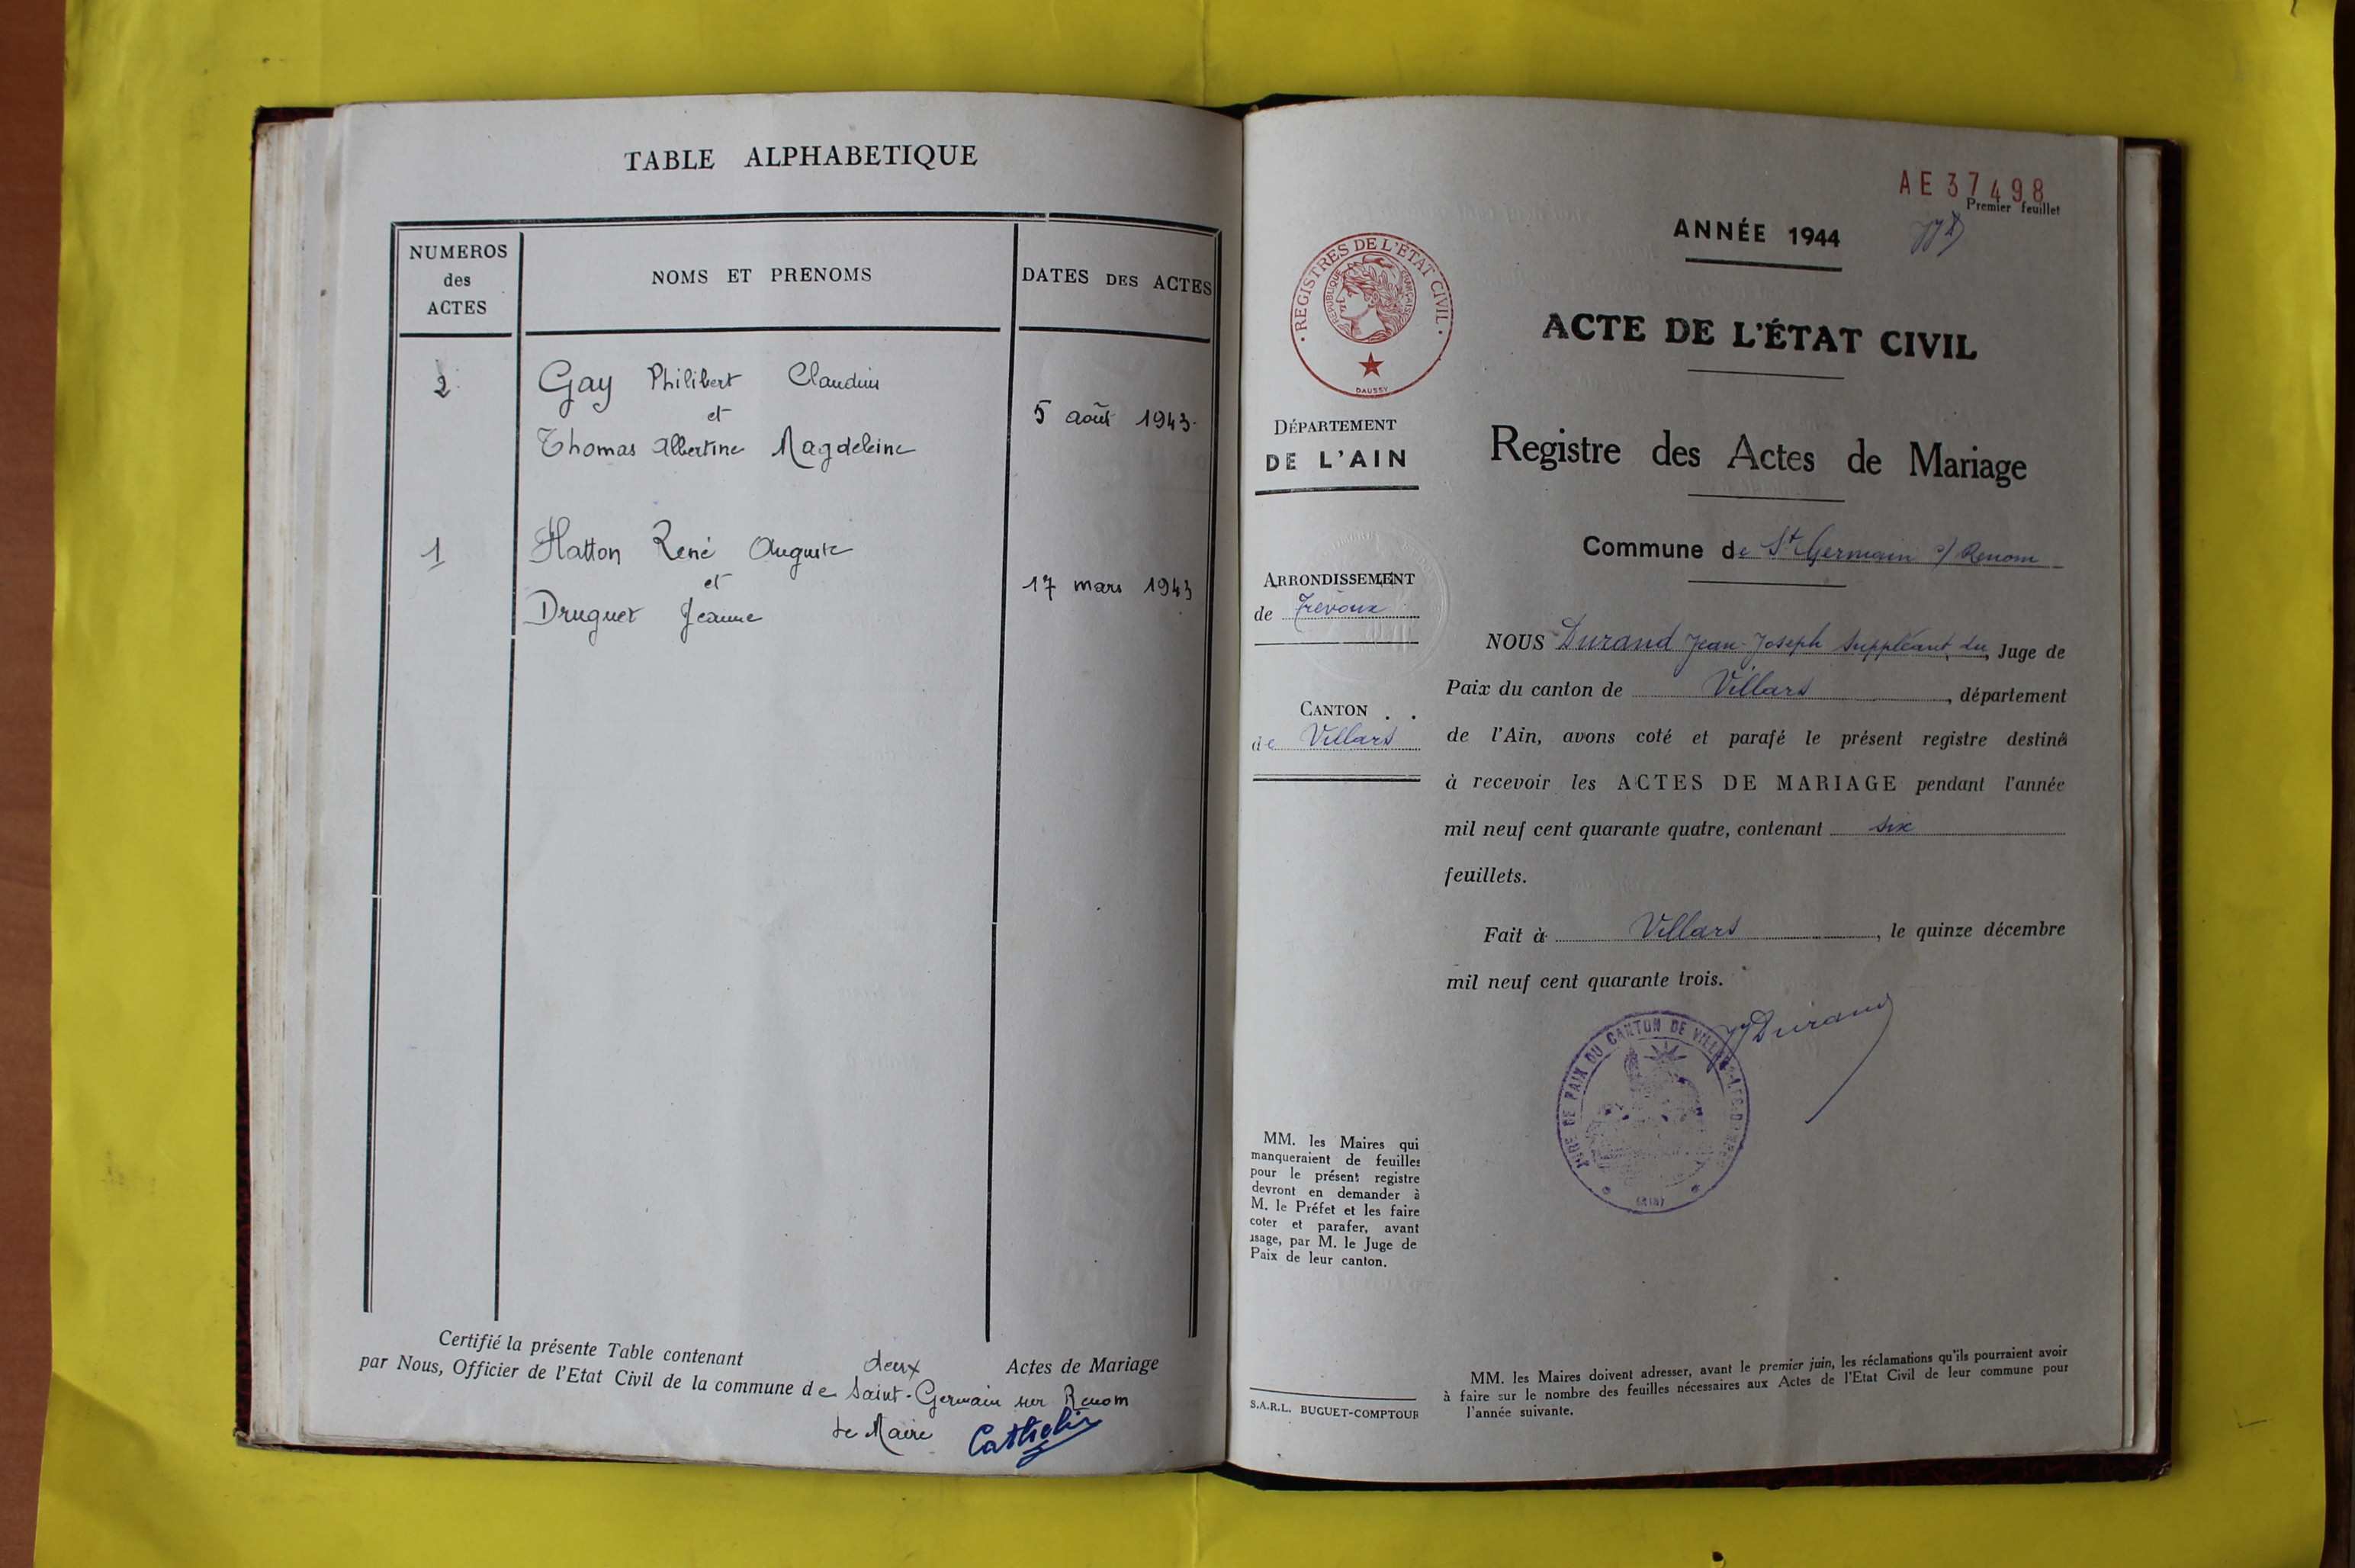 TABLE ALPHABETIQUE
NUMEROS
des
ACTES
NOMS ET PRENOMS
DATES DES ACTES
2
Gay Philibert Claudius
et
Thomas Albertine Magdeleine
5 août 1943
1
Hatton René Auguste
et
Druguet Jeanne
17 mars 1943
Certifié la présente Table contenant deux Actes de Mariage
par Nous, Officier de l'Etat Civil de la commune de Saint-Germain sur Renom
Le Maire
AE 37498
Premier feuillet
ANNÉE 1944
· REGISTRES DE L'ÉTAT CIVIL ·
RÉPUBLIQUE FRANÇAISE
DAUSSY
ACTE DE L'ÉTAT CIVIL
DÉPARTEMENT
DE L'AIN
Registre des Actes de Mariage
Commune de St Germain s/ Renom
ARRONDISSEMENT
de Trévoux
CANTON
de Villars
NOUS Durand Jean-Joseph Suppléant du Juge de
Paix du canton de Villars, département
de l'Ain, avons coté et parafé le présent registre destiné
à recevoir les ACTES DE MARIAGE pendant l'année
mil neuf cent quarante quatre, contenant six
feuillets.
Fait à Villars, le quinze décembre
mil neuf cent quarante trois.
JJ Durand
DE PAIX DU CANTON DE VILLARS-LES-DOMBES
(AIN)
MM. les Maires qui
manqueraient de feuilles
pour le présent registre
devront en demander à
M. le Préfet et les faire
coter et parafer, avant
usage, par M. le Juge de
Paix de leur canton.
S.A.R.L. BUGUET-COMPTOUR
MM. les Maires doivent adresser, avant le premier juin, les réclamations qu'ils pourraient avoir
à faire sur le nombre des feuilles nécessaires aux Actes de l'Etat Civil de leur commune pour
l'année suivante.